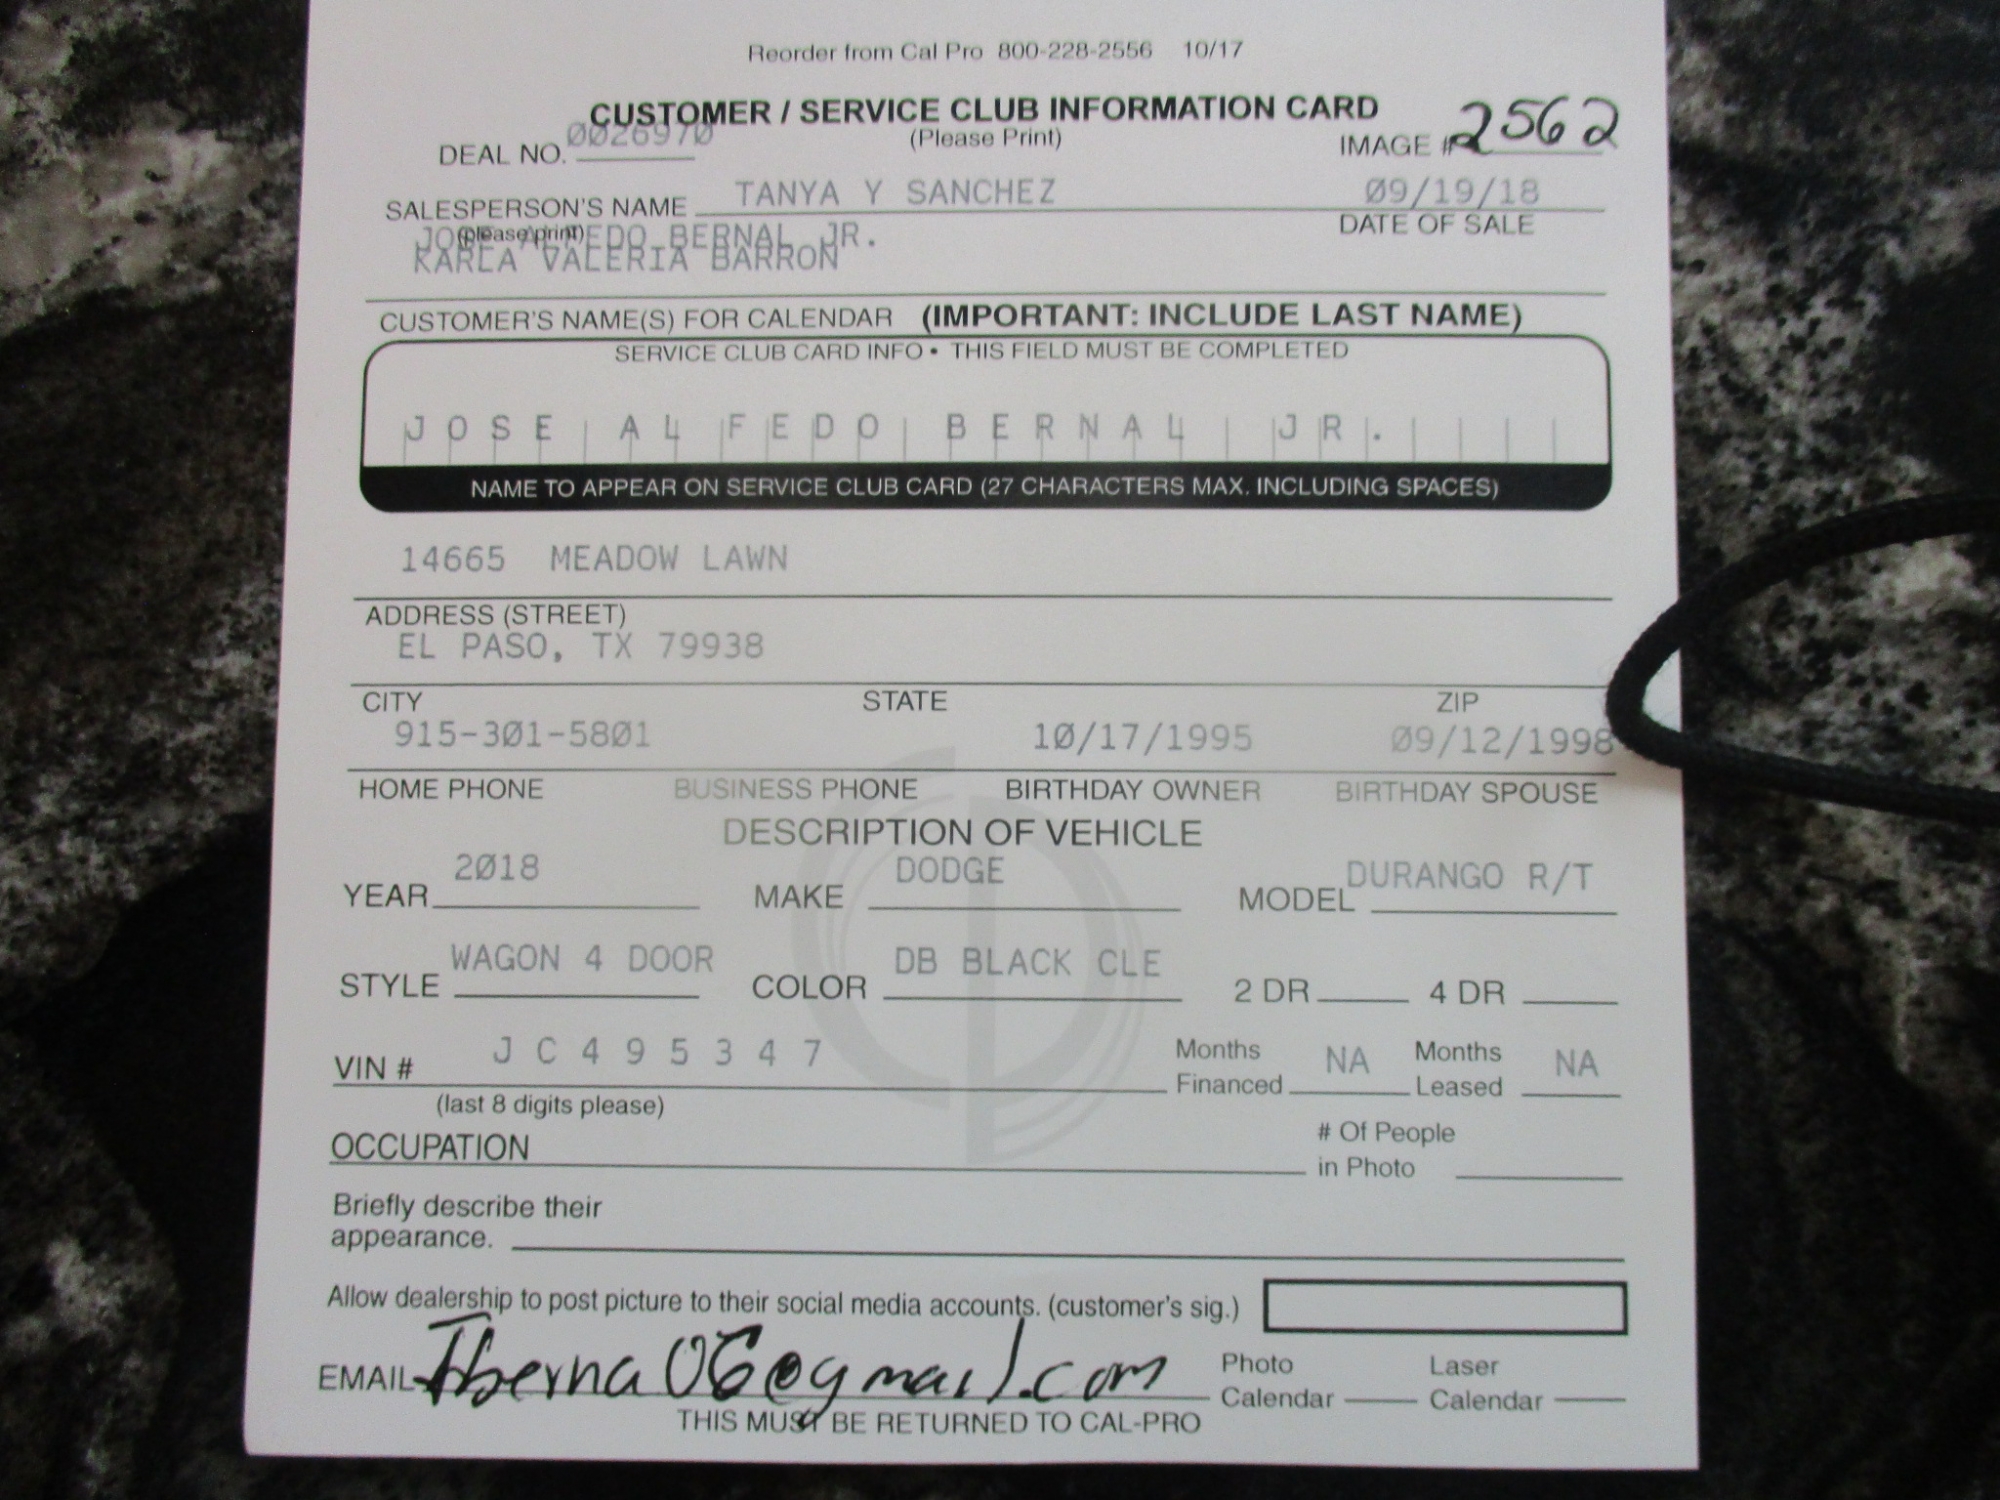 Reorder from Cal Pro 800-228-2556 10/17
CUSTOMER / SERVICE CLUB INFORMATION CARD
(Please Print)
DEAL NO. 0026970
IMAGE # 2562
SALESPERSON'S NAME TANYA Y SANCHEZ 09/19/18
(please print) DATE OF SALE
BERNAL JR.
KARLA VALERIA BARRON
CUSTOMER'S NAME(S) FOR CALENDAR (IMPORTANT: INCLUDE LAST NAME)
SERVICE CLUB CARD INFO • THIS FIELD MUST BE COMPLETED
JOSE ALFEDO BERNAL JR.
NAME TO APPEAR ON SERVICE CLUB CARD (27 CHARACTERS MAX. INCLUDING SPACES)
14665 MEADOW LAWN
ADDRESS (STREET)
EL PASO, TX 79938
CITY STATE ZIP
915-301-5801 10/17/1995 09/12/1998
HOME PHONE BUSINESS PHONE BIRTHDAY OWNER BIRTHDAY SPOUSE
DESCRIPTION OF VEHICLE
YEAR 2018 MAKE DODGE MODEL DURANGO R/T
STYLE WAGON 4 DOOR COLOR DB BLACK CLE 2 DR 4 DR
VIN # JC495347 Months Financed NA Months Leased NA
(last 8 digits please)
OCCUPATION # Of People in Photo
Briefly describe their
appearance.
Allow dealership to post picture to their social media accounts. (customer's sig.)
EMAIL Photo Calendar Laser Calendar
THIS MUST BE RETURNED TO CAL-PRO